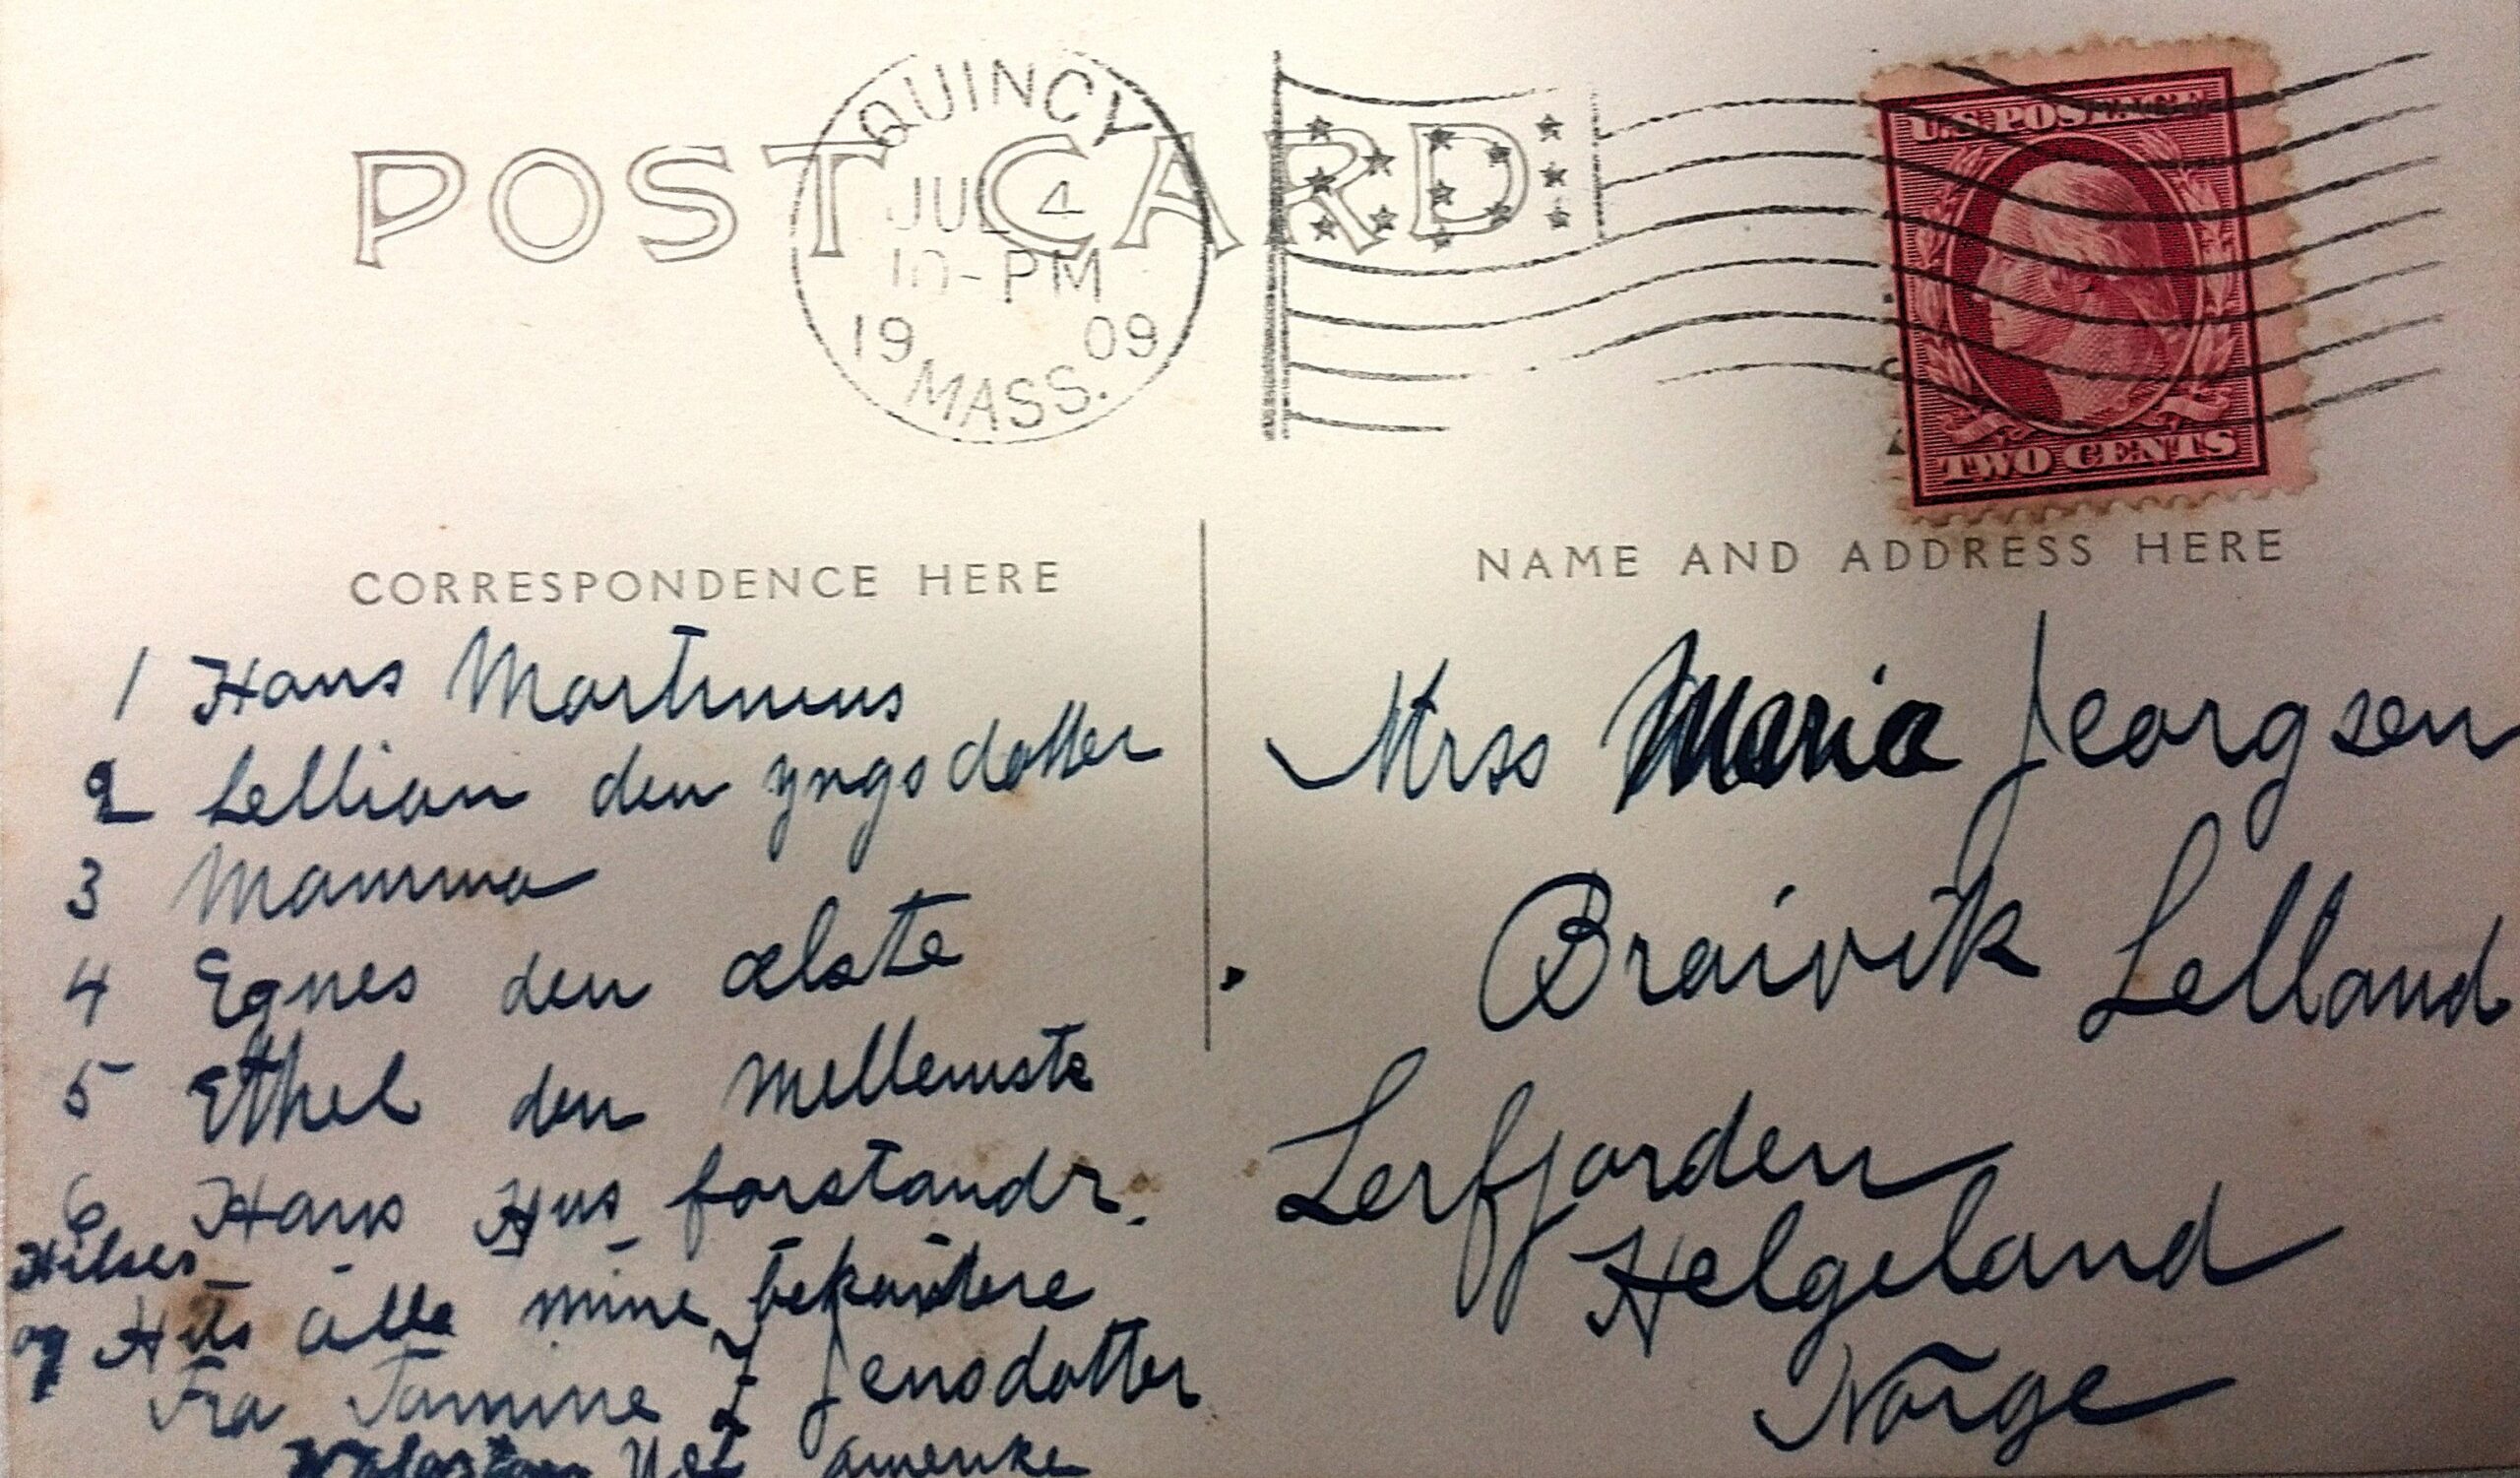 POST CARD
QUINCY
JUL 4
10-PM
19 09
MASS.
U.S. POSTAGE
TWO CENTS
CORRESPONDENCE HERE
1 Hans Martinus
2 Lellian den yngsdotter
3 Mamma
4 Egnes den ælste
5 Ethel den mellemste
6 Hans Hus forstandr.
Hilser
og Hils alle mine bekantere
Fra Tamine J Jensdotter
amerike
NAME AND ADDRESS HERE
Mrss Maria Jeorgsen
Braivik Lelland
Lerfjorden
Helgeland
Norge